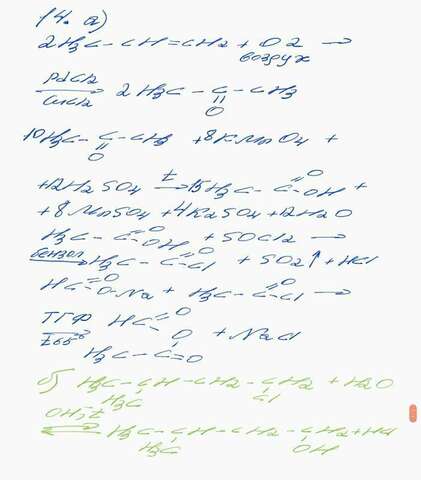 14. а)
2H3C - CH = CH2 + O2 →
воздух
PdCl2
CuCl2
2H3C - C - CH3
O
10H3C - C - CH3 + 8KMnO4 +
O
+12H2SO4 t → 15H3C - C O OH +
+8MnSO4 + 4K2SO4 + 12H2O
H3C - C O OH + SOCl2 →
бензол H3C - C O Cl + SO2↑ + HCl
HC O O-Na + H3C - C O Cl →
ТГФ HC = O
O + NaCl
H3C - C = O
б) H3C - CH - CH2 - CH2 + H2O
H3C Cl
OH-, t
H3C - CH - CH2 - CH2 + HCl
H3C OH